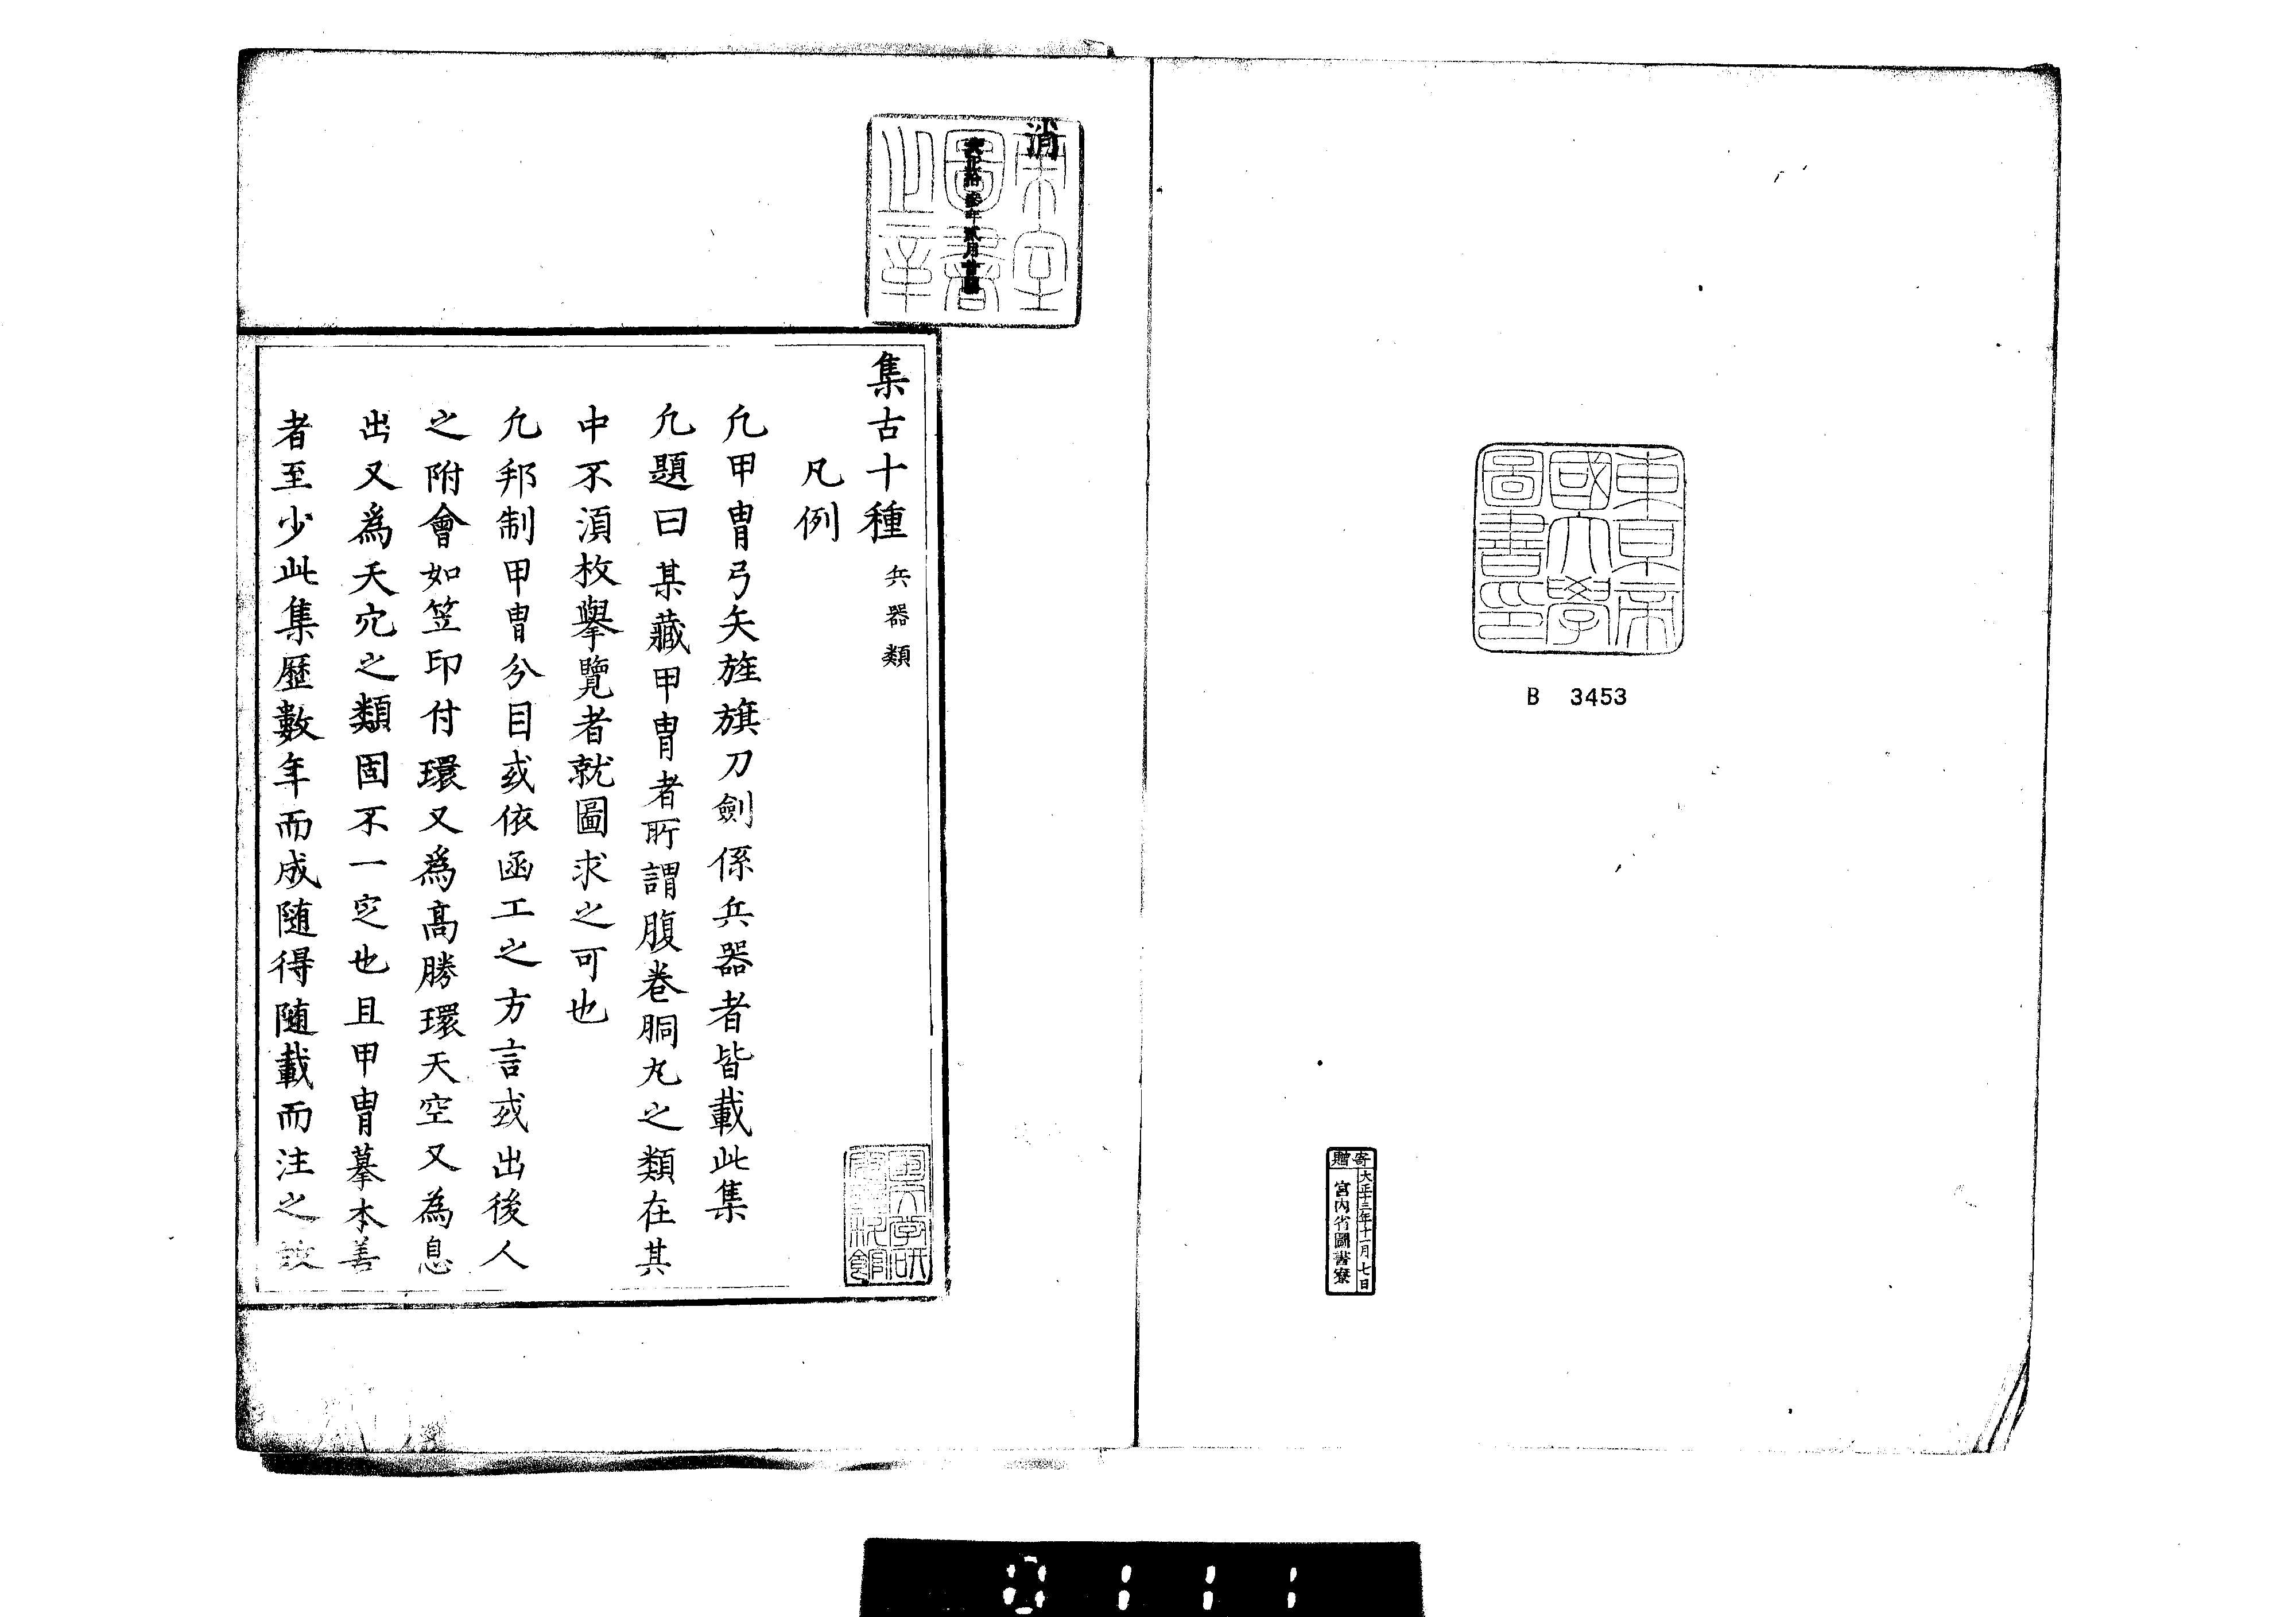 東京帝
國大學
圖書印
B 3453
寄贈
大正十三年十一月七日
宮内省圖書寮
消
圖書
之章
集古十種 兵器類
凡例
凢甲冑弓矢旌旗刀劍係兵器者皆載此集
凢題曰某藏甲冑者所謂腹巻胴丸之類在其
中不湏枚擧覽者就圖求之可也
凢邦制甲冑分目或依函工之方言或出後人
之附會如笠印付環又為髙勝環天空又為息
出又為天穴之類固不一定也且甲冑摹本善
者至少此集歷數年而成随得随載而注之故
0111